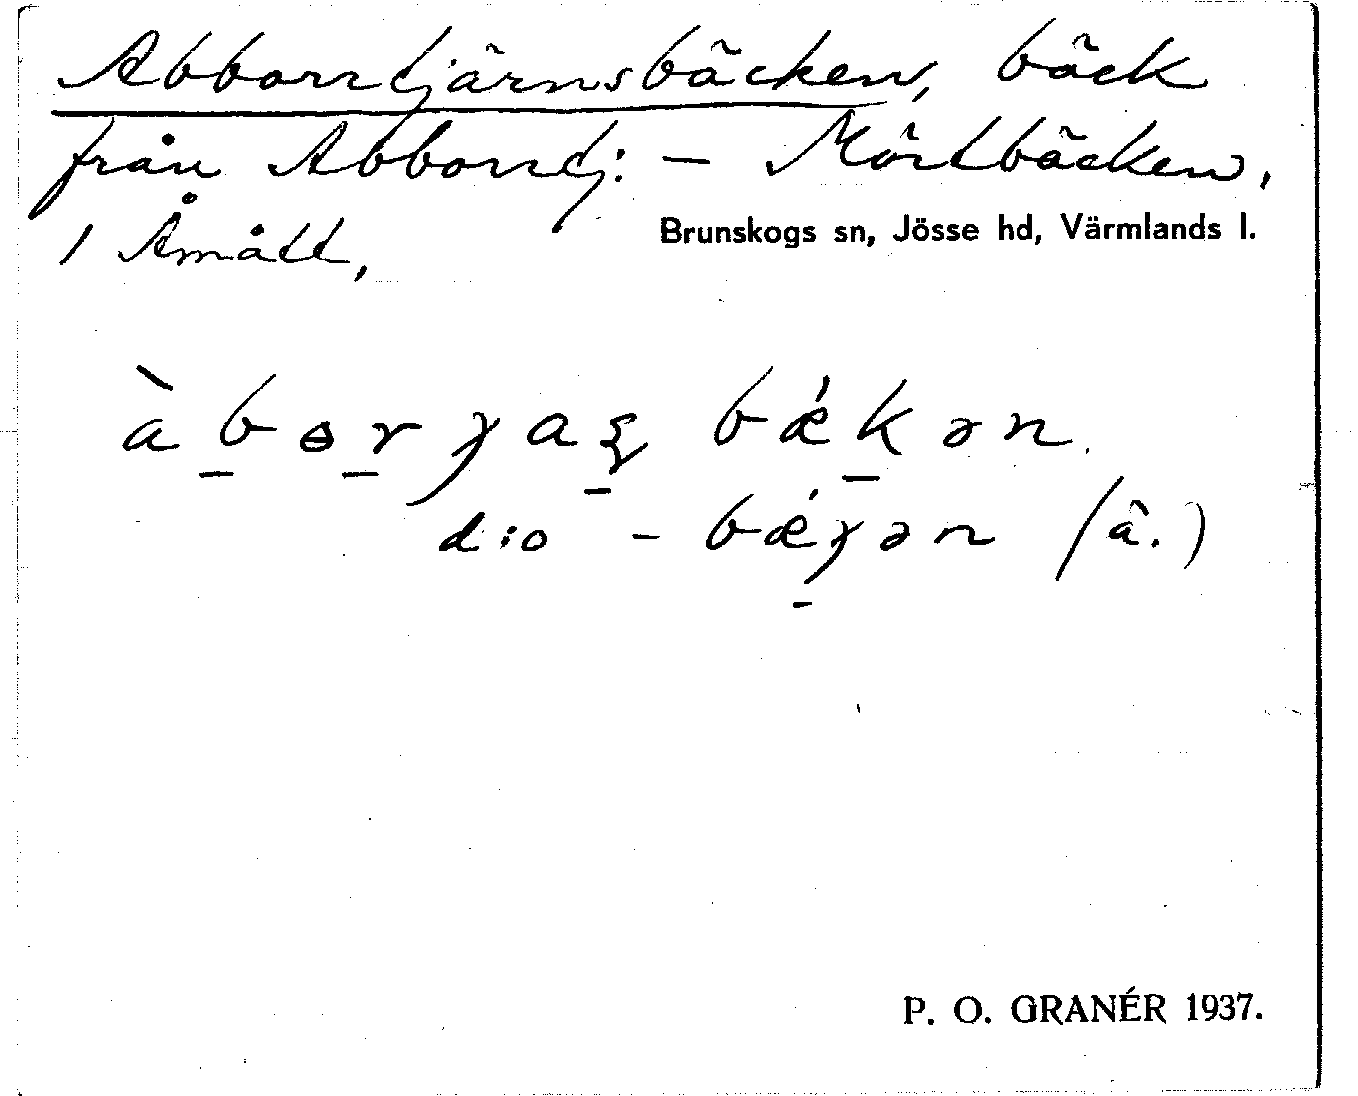 Abborrtjärnsbäcken, bäck
från Abborrtj: – Mörtbäcken.
1 Åmått,
Brunskogs sn, Jösse hd, Värmlands l.
àbɵrɟaʂ bǽkən.
d:o – bǽɟən (ä.)
P. O. GRANÉR 1937.